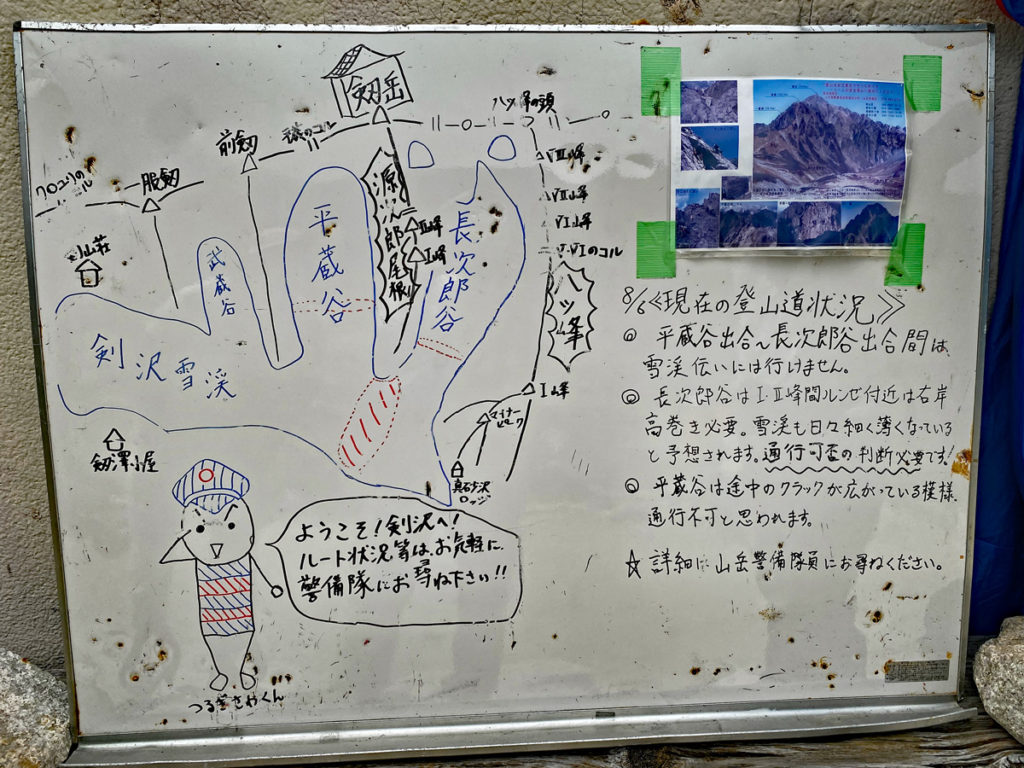 剱岳
八ツ峰の頭
前剱
一服剱
クロユリのコル
Ⅷ峰
Ⅶ峰
Ⅵ峰
Ⅴ・Ⅵのコル
八ツ峰
Ⅰ峰
マイナーピーク
真砂沢ロッジ
源次郎尾根
Ⅱ峰
Ⅰ峰
長次郎谷
平蔵谷
武蔵谷
剣沢雪渓
剱澤小屋
8/6≪現在の登山道状況≫
◎ 平蔵谷出合~長次郎谷出合間は、
雪渓伝いには行けません。
◎ 長次郎谷はⅠ・Ⅱ峰間ルンゼ付近は右岸
高巻き必要。雪渓も日々細く薄くなっている
と予想されます。通行可否の判断必要です!
◎ 平蔵谷は途中のクラックが広がっている模様、
通行不可と思われます。
☆ 詳細は山岳警備隊員にお尋ねください。
ようこそ!剣沢へ!
ルート状況等は、お気軽に、
警備隊にお尋ね下さい!!
つるぎさわくん